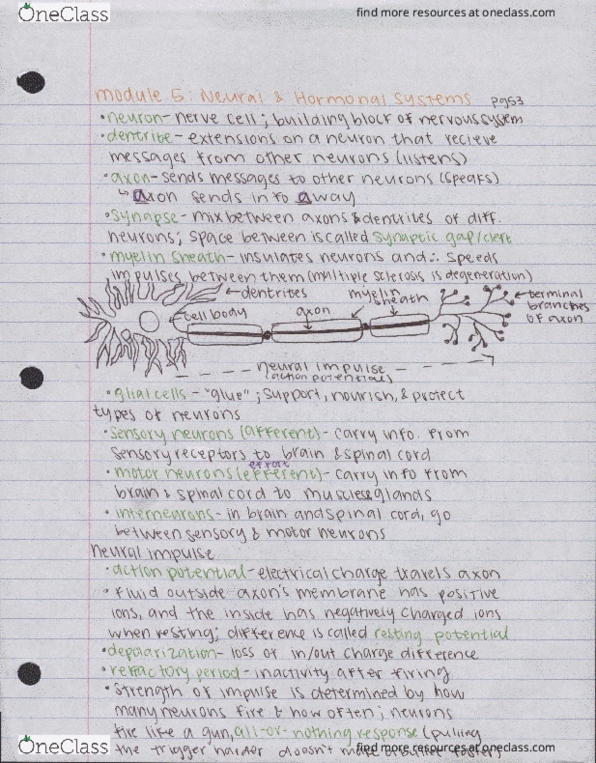 OneClass
find more resources at oneclass.com
module 5: Neural & Hormonal Systems pg53
• neuron - nerve cell; building block of nervous system
• dentrite - extensions on a neuron that recieve
messages from other neurons (listens)
• axon - sends messages to other neurons (speaks)
↳ axon sends info away
• synapse - mix between axons & dentrites of diff.
neurons; space between is called synaptic gap/cleft
• myelin sheath - insulates neurons and ∴ speeds
impulses between them (multiple sclerosis is degeneration)
←dentrites
cell body
axon
myelin sheath
terminal branches of axon
neural impulse
(action potential)
• glial cells - "glue"; support, nourish, & protect
types of neurons
• sensory neurons (afferent) - carry info. from
sensory receptors to brain & spinal cord
effort
• motor neurons (efferent) - carry info from
brain & spinal cord to muscles & glands
• interneurons - in brain and spinal cord, go
between sensory & motor neurons
neural impulse
• action potential - electrical charge travels axon
• fluid outside axon's membrane has positive
ions, and the inside has negatively charged ions
when resting; difference is called resting potential
• depolarization - loss of in/out charge difference
• refractory period - inactivity after firing
• strength of impulse is determined by how
many neurons fire & how often; neurons
fire like a gun, all-or-nothing response (pulling
the trigger harder doesn't make
OneClass
find more resources at oneclass.com